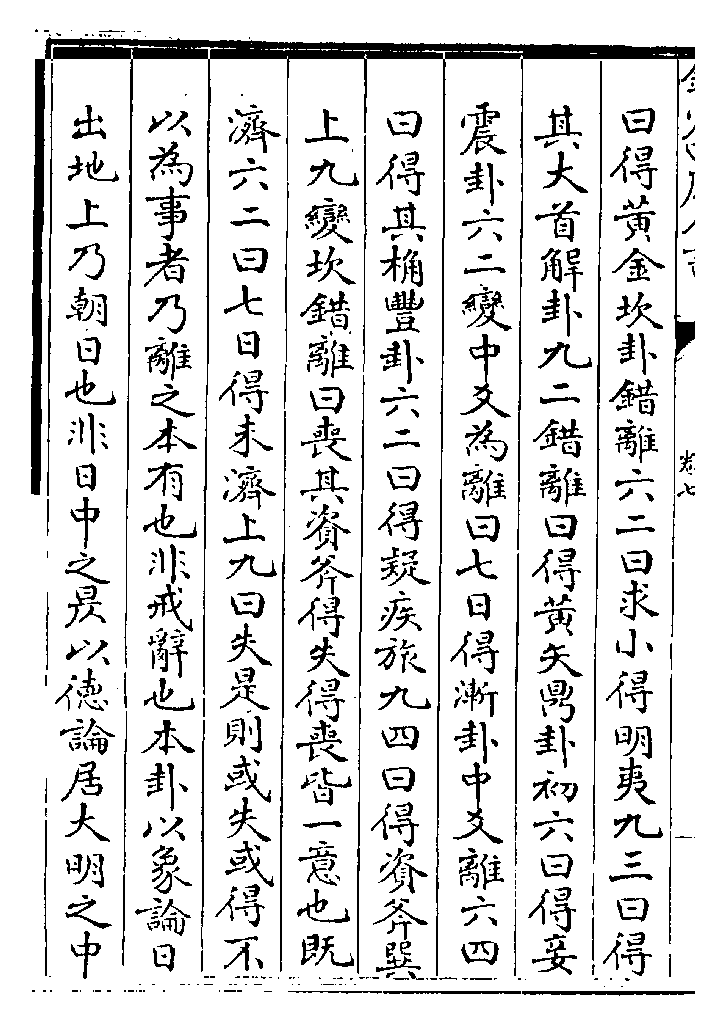 曰得黃金坎卦錯離六二曰求小得明夷九三曰得
其大首解卦九二錯離曰得黃矢鼎卦初六曰得妾
震卦六二變中爻為離曰七日得漸卦中爻離六四
曰得其桷豐卦六二曰得疑疾旅九四曰得資斧巽
上九變坎錯離曰喪其資斧得失得喪皆一意也既
濟六二曰七日得未濟上九曰失是則或失或得不
以為事者乃離之本有也非戒辭也本卦以象論日
出地上乃朝日也非日中之昃以德論居大明之中
卷七